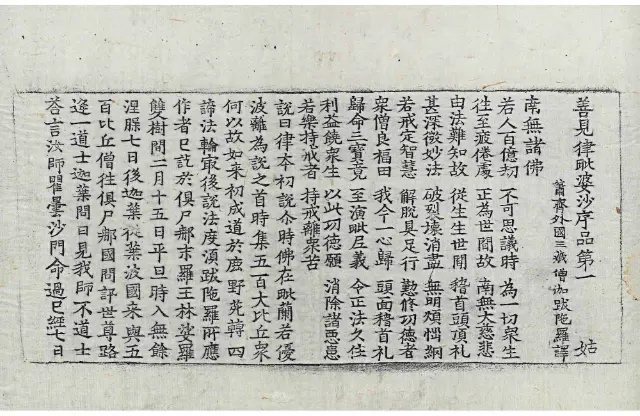 善見律毗婆沙序品第一 姑
蕭齊外國三藏僧伽跋陀羅譯
南無諸佛
若人百億劫 不可思議時 為一切衆生
往至疲倦處 正為世間故 南無大慈悲
由法難知故 從生生世間 稽首頭頂礼
甚深微妙法 破烈壞消盡 無明煩惱網
若戒定智慧 解脫具足行 勤修功德者
衆僧良福田 我今一心歸 頭面稽首礼
歸命三寶竟 至演毗尼義 令正法久住
利益饒衆生 以此功德願 消除諸惡患
若樂持戒者 持戒離衆苦
說曰律本初說尒時佛在毗蘭若優
波離為說之首時集五百大比丘衆
何以故如来初成道於鹿野苑轉四
諦法輪最後說法度須跋陁羅所應
作者已訖於俱尸那末羅王林娑羅
雙樹間二月十五日平旦時入無餘
涅脲七日後迦葉從葉波國来與五
百比丘僧往俱尸那國問訊世尊路
逢一道士迦葉問曰見我師不道士
荅言汝師瞿曇沙門命過已經七日